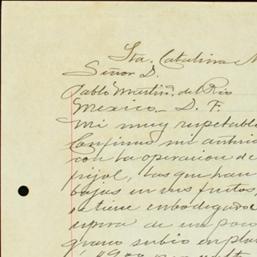 Sta. Catalina
Señor D.
Pablo Martínez del Rio
Mexico - D. F.
Mi muy respetable
Confirmo mi anterior
con la operacion de
frijol, las que han
bajas en sus fritos,
se tiene embodegado
espera de un poco
grano subio en pla